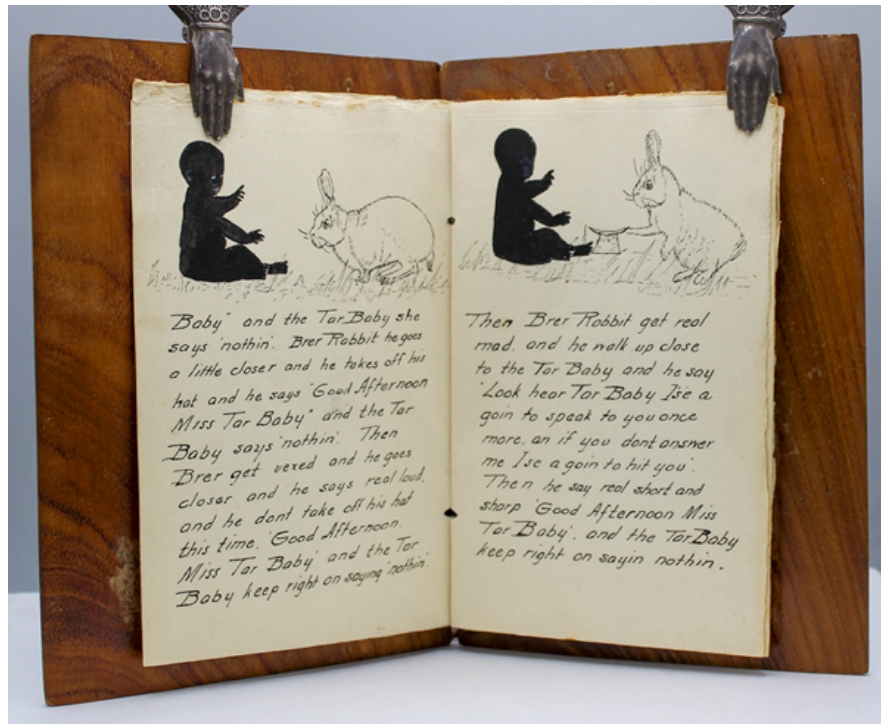 Baby" and the Tar Baby she
says 'nothin'. Brer Rabbit he goes
a little closer and he takes off his
hat and he says "Good Afternoon
Miss Tar Baby" and the Tar
Baby says 'nothin'. Then
Brer get vexed and he goes
closer and he says real loud,
and he dont take off his hat
this time, 'Good Afternoon.
Miss Tar Baby' and the Tar
Baby keep right on saying 'nothin'.
Then Brer Rabbit get real
mad, and he walk up close
to the Tar Baby and he say
'Look hear Tar Baby I'se a
goin to speak to you once
more, an if you dont answer
me I se a goin to hit you'.
Then he say real short and
sharp 'Good Afternoon Miss
Tar Baby', and the Tar Baby
keep right on sayin nothin.